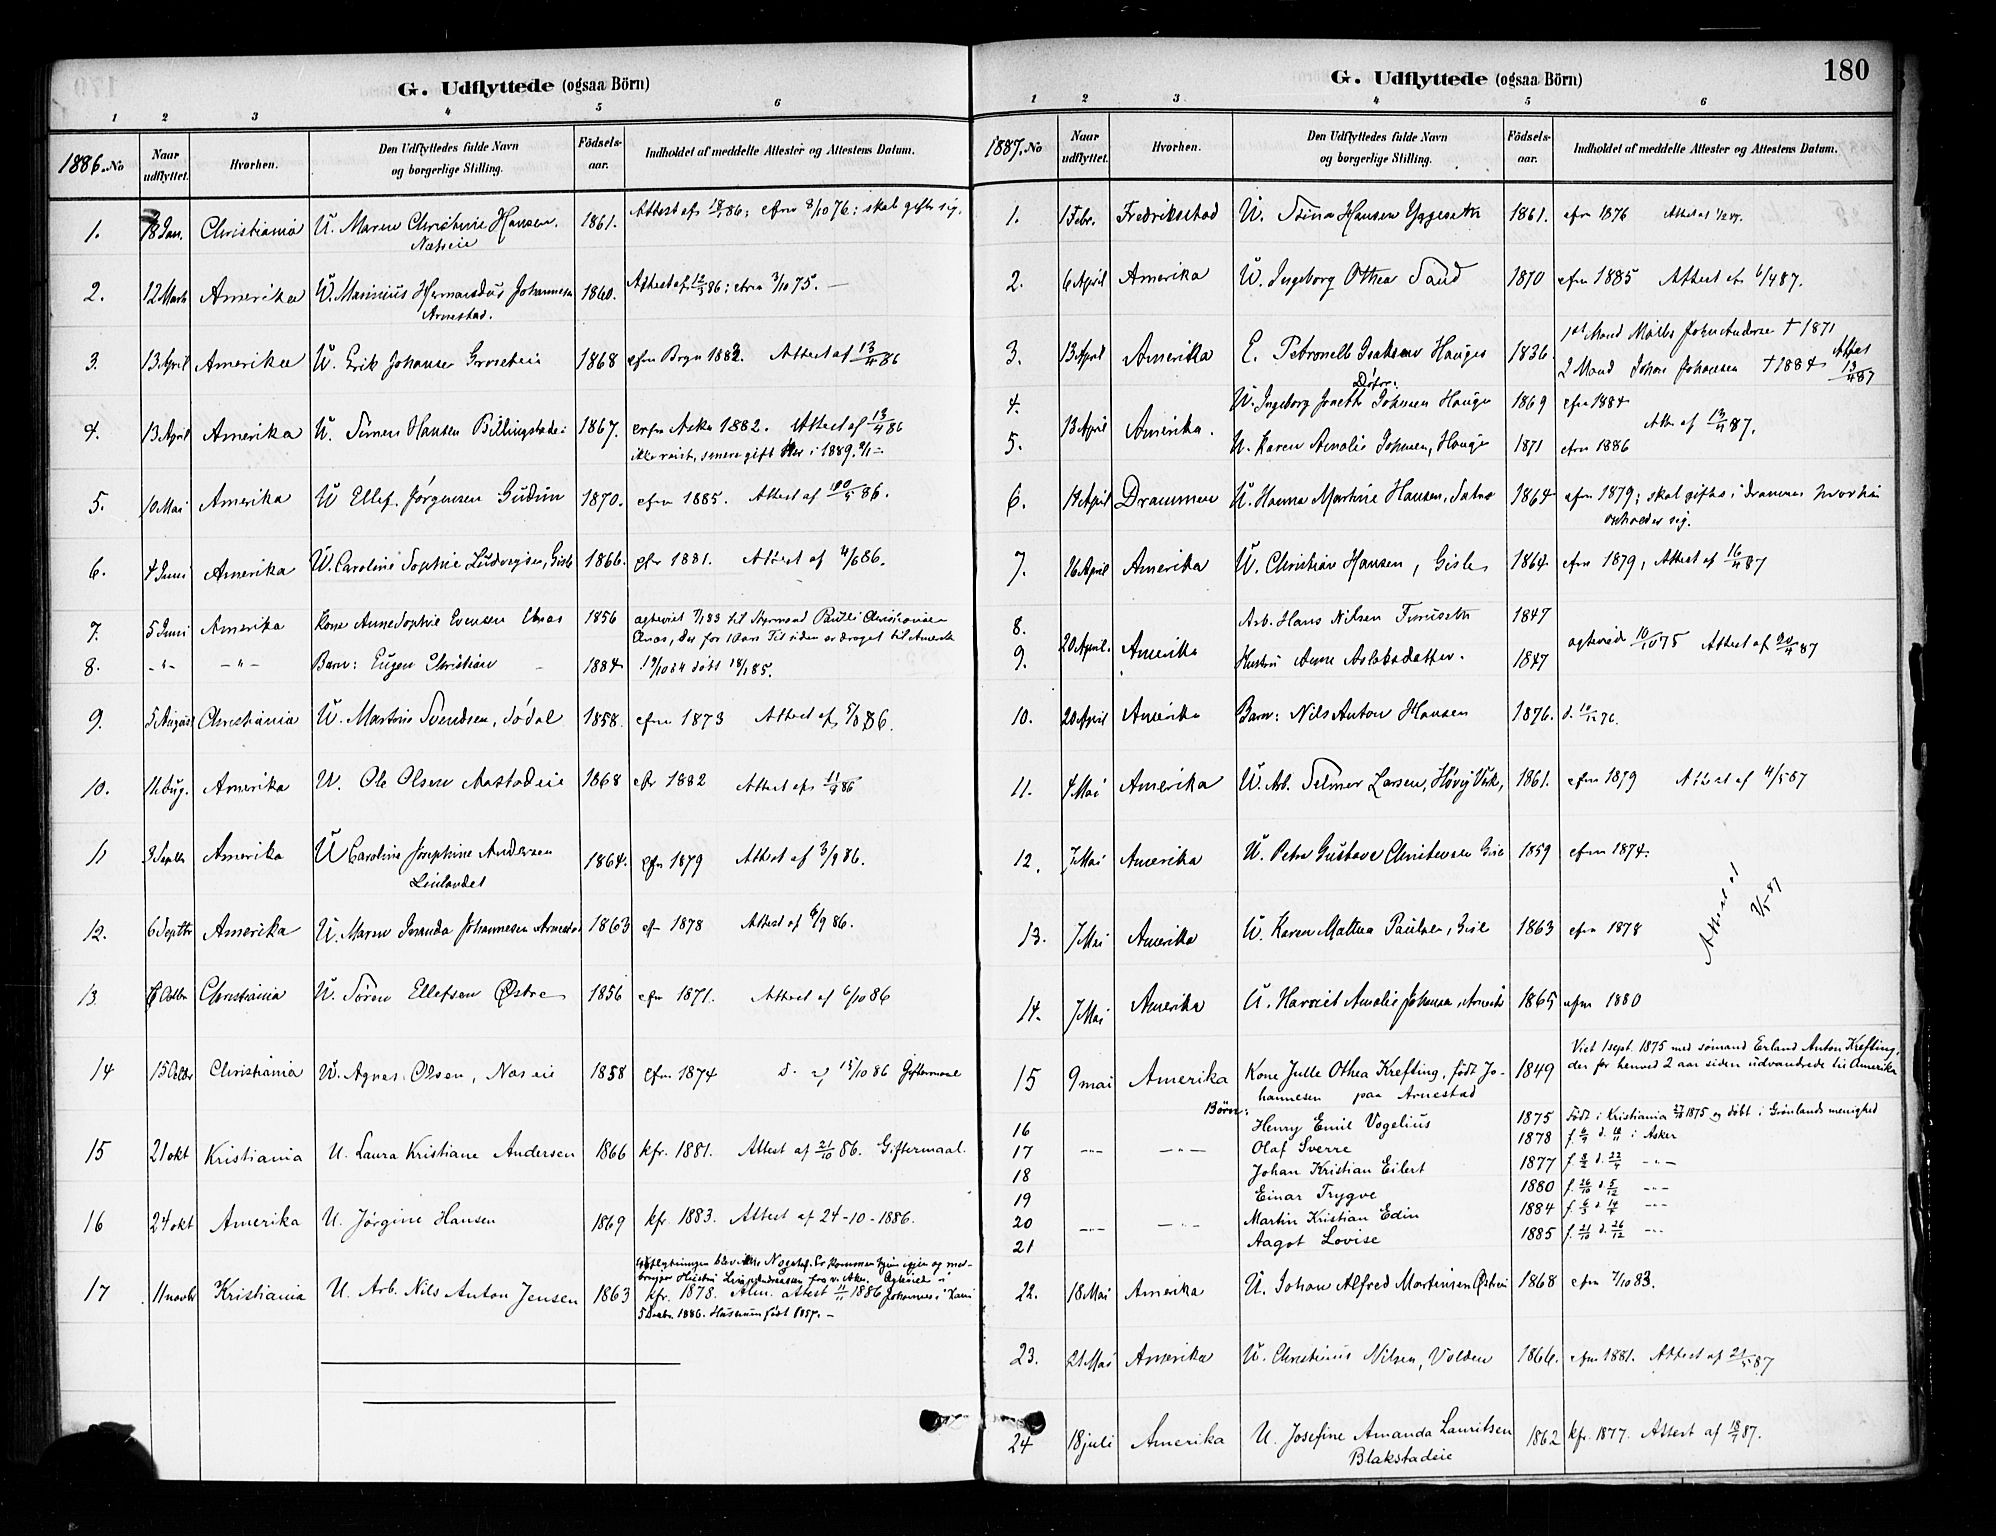 G. Udflyttede (ogsaa Börn)
1 2 3 4 5 6
1886. No Naar udflyttet. Hvorhen. Den Udflyttedes fulde Navn og borgerlige Stilling. Födsels-aar. Indholdet af meddelte Attester og Attestens Datum.
1. 18 Jan. Christiania U. Maren Christine Hansen, Næseie 1861. Attest af 18/1 86; cfrm 8/10 76; skal gifte sig.
2. 12 Marts Amerika U. Marinius Hermandus Johannesen Arnestad. 1860. Attest af 12/3 86; cfrm 3/10 75. —
3. 13 April Amerika U. Erik Johansen 1868 cfrm 1883. Attest af 13/4 86
4. 13 April Amerika U. Simen Hansen Billingstadeie 1867. Asker 1882. Attest af 13/4 86
ikke reist, senere gift her i 1889.
5. 10 Mai Amerika U Ellef Jørgensen Gudim 1870. cfrm 1885. Attest af 10/5 86.
6. 4 Juni Amerika U. Caroline Sophie Ludvigsen, Gisle 1866. cfr 1881. Attest af 4/6 86.
7. 5 Juni Amerika Kone Anne Sophie Evensen 1856 agtevviet 83 til Styrmand Pauli Christiansen
der for 1 Aar Tid siden er draget til Amerika
8. -"- -"- Barn: Eugen Christian 1884. 84 döbt 85.
9. 5 August Christiania U. Martin Svendsen, Södal 1858. cfrm 1873 Attest af 5/8 86.
10. 11 Aug. Amerika U. Ole Olsen Aastadeie 1868 cfr 1882 Attest af 11/8 86
11 3 Septbr Amerika U Caroline Josephine Andersen 1864. cfrm 1879 Attest af 3/9 86.
12. 6 Septbr Amerika U. Maren Johannesen Arnestad 1863 cfr 1878 Attest af 6/9 86.
13. 6 Octbr Christiania U. Sören Ellefsen Østre 1856 cfr 1871. Attest af 6/10 86
14 15 Octbr Christiania U. Agnes Olsen, Næseie 1858 cfrm 1874 15/10 86 Giftermaal
15 21 okt Kristiania U. Laura Kristiane Andersen 1866 kfr. 1881. Attest af 21/10 86. Giftermaal.
16 24 okt Amerika U. Jörgine Hansen 1869 kfr. 1883. Attest af 24-10-1886.
17 11 novbr Kristiania U. Arb. Nils Anton Jensen 1863 kfr. 1878. Alm. attest 11/11 1886
5 Decbr. 1886. Hustruen født 1857. —
G. Udflyttede (ogsaa Börn) 180
1 2 3 4 5 6
1887. No Naar udflyttet. Hvorhen. Den Udflyttedes fulde Navn og borgerlige Stilling. Födsels-aar. Indholdet af meddelte Attester og Attestens Datum.
1. 1 Febr. Fredriksstad U. Hansen 1861. cfrm 1876 Attest af 1/2 87.
2. 6 April Amerika U. Ingeborg Othea Sand 1870 cfrm 1885 Attest af 6/4 87.
3. 13 April Amerika E. Petronelle Isaksen Hauger 1836. 1ste Mand John Andersen † 1871
2 Mand Johan Johansen † 1884 Attest 13/4 87
Døtre:
4. 13 April Amerika. U. Ingeborg Johnsen Hauger 1869 cfrm 1884
Att. af 13/4 87.
5. U. Karen Amalie Johnsen, Hauger 1871 cfrm 1886
6. 14 April Drammen U. Hanna Martine Hansen, 1864 cfrm 1879; skal giftes i Drammen hvor hun
opholder sig.
7. 16 April Amerika U. Christian Hansen, Gisle 1864. cfrm 1879, Attest af 16/4 87
8. 20 April. Amerika Arb. Hans Nilsen 1847
9. Hustru Anne Aslaksdatter. 1847 agteviede 75 Attest af 20/4 87
10. 20 April Amerika Barn: Nils Anton Hansen 1876. d. 76.
11. 4 Mai Amerika U. Arb. Selmer Larsen, Høvig Verk, 1861. cfrm 1879 Attest af 4/5 87
12. 7 Mai Amerika U. Petra Gustava Christensen Gisle 1859 cfrm 1874.
13. 7 Mai Amerika U. Karen Mathea Paulsen, Gisle 1863 cfrm 1878
Attest af 7/5 87
14. 7 Mai Amerika U. Harriet Amalie Johansen, 1865 cfrm 1880
15 9 mai Amerika Kone Julle Othea Krefting, født Jo-
hannesen paa Arnestad 1849 Viet 1 sept. 1875 med sømand Erland Anton Krefting,
der for henved 2 aar siden udvandrede til Amerika
Börn:
16 Henry Emil Vogelius 1875 Født i Kristiania 1875 og döbt i Grönlands menighed
17 -"- -"- Olaf Sverre 1878 i Asker
18 Johan Kristian Eilert 1877 -"-
19 Einar Trygve 1880 -"-
20 -"- -"- Martin Kristian Edin 1884 -"-
21 Aagot Lovise 1885 -"-
22. 18 Mai Amerika U. Johan Alfred Mortensen 1868 cfrm 7/10 83.
23. 21 Mai Amerika U. Christinius Nilsen, Volden 1866. cfrm 1881. Attest af 21/5 87
24 18 juli Amerika U. Josefine Amanda Lauritsen
Blakstadeie 1862 kfr. 1877. Attest af 18/7 87.